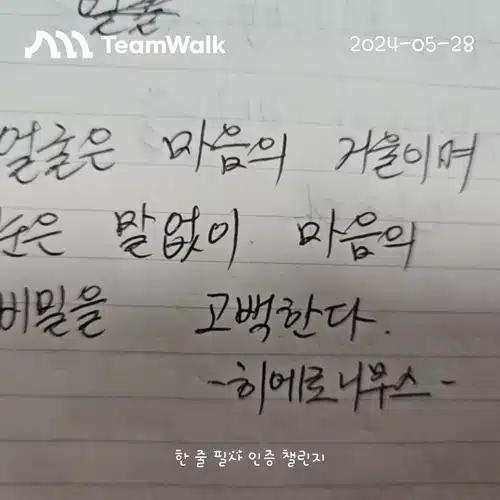 TeamWalk
2024-05-28
얼굴은 마음의 거울이며
눈은 말없이 마음의
비밀을 고백한다.
-히에로니무스-
한 줄 필사 인증 챌린지